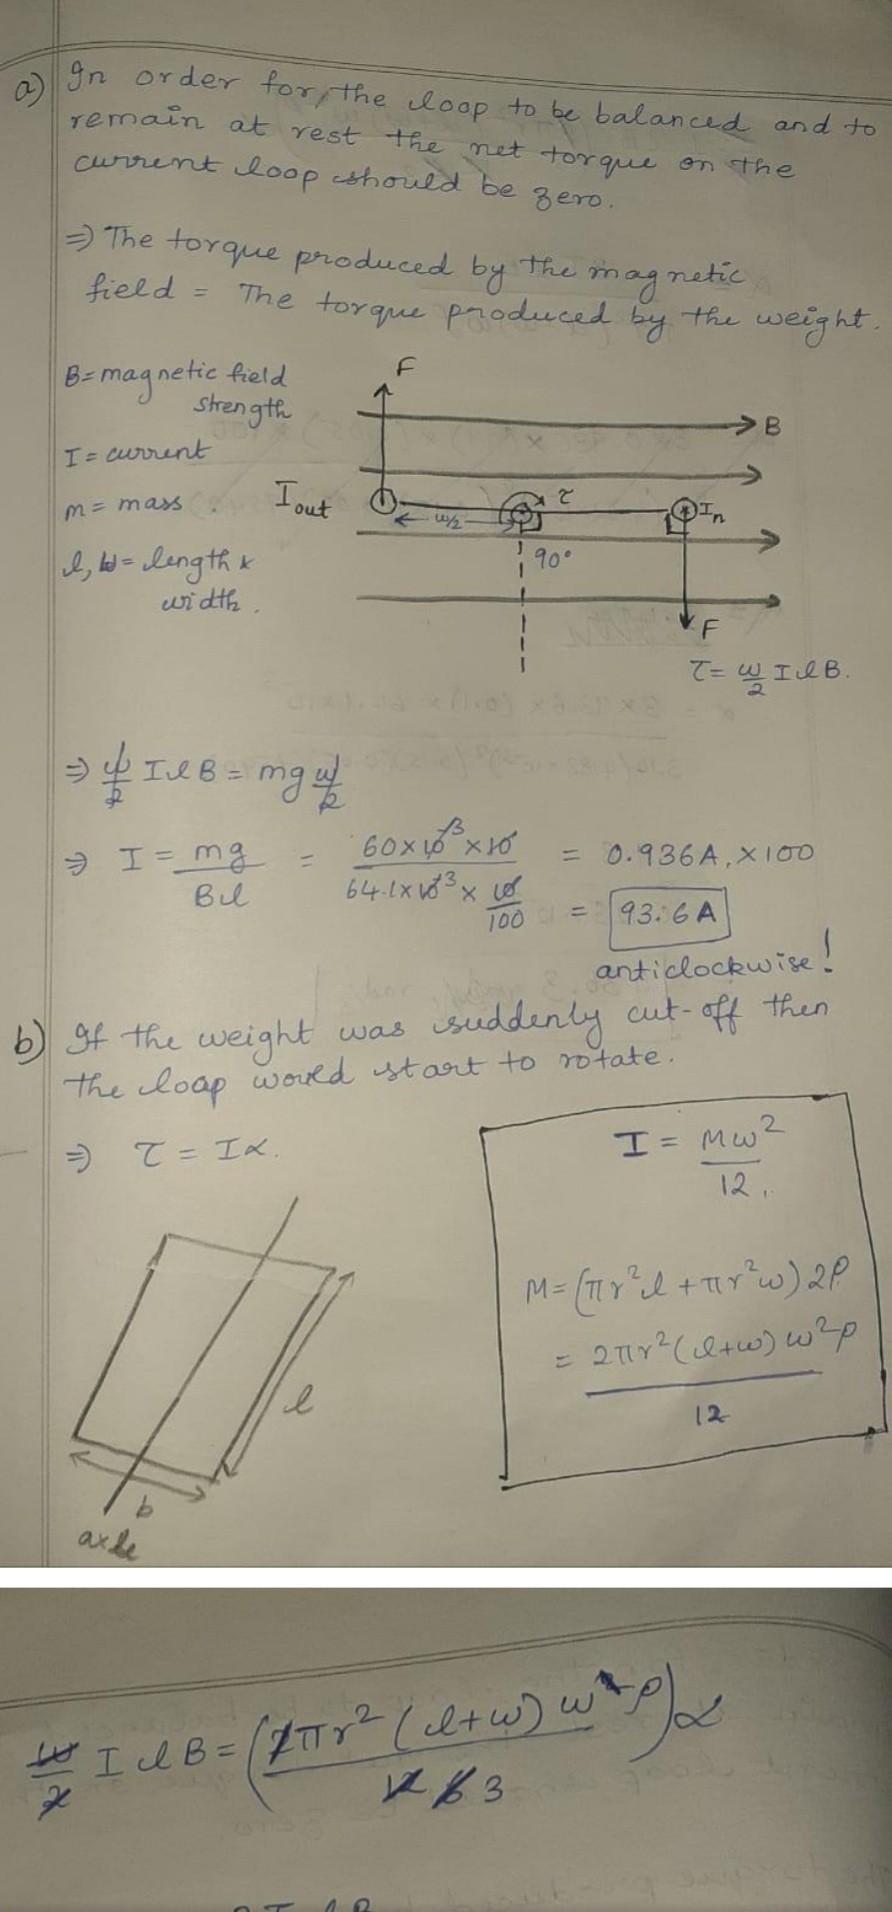 a) In order for, the loop to be balanced and to
remain at rest the net torque on the
current loop should be zero.
⇒ The torque produced by the magnetic
field = The torque produced by the weight.
B = magnetic field
strength
I = current
m = mass
l, w = length x
width.
F
B
I out
w/2
τ
In
90°
F
τ = w/2 I l B.
⇒ w/2 I l B = mg w/2
⇒ I = mg/Bl = 60×10⁻³×10 / 64.1×10⁻³ × 10/100 = 0.936A, ×100
= 93.6 A
anticlockwise!
b) If the weight was suddenly cut-off then
the loop would start to rotate.
⇒ τ = Iα.
I = Mω²/12.
M = (πr²l + πr²ω) 2ρ
= 2πr²(l+ω) ω²ρ / 12
l
b
axle
w/2 I l B = (2πr² (l+w) w² ρ / 12 6 3) α